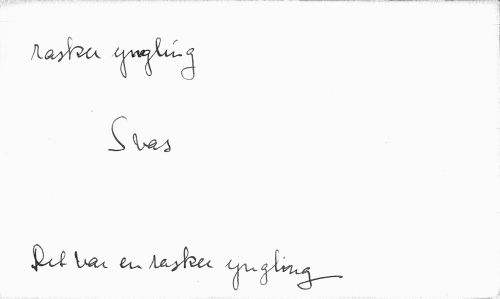 rasker yngling
Svas
Det var en rasker yngling